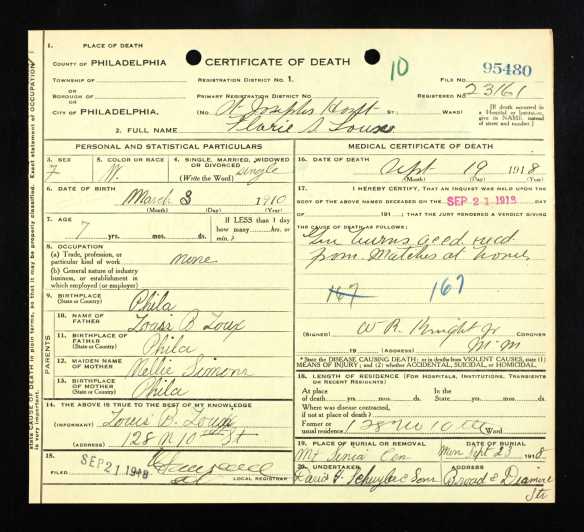 1. PLACE OF DEATH
COUNTY OF PHILADELPHIA
CERTIFICATE OF DEATH
10
95480
TOWNSHIP OF
REGISTRATION DISTRICT NO. 1.
FILE NO.
OR
BOROUGH OF
PRIMARY REGISTRATION DISTRICT NO.
REGISTERED NO. 23161
OR
CITY OF PHILADELPHIA.
(No. St Josephs Hospt ST; WARD)
[If death occurred in a Hospital or Institution, give its NAME instead of street and number.]
2. FULL NAME S. Loux
PERSONAL AND STATISTICAL PARTICULARS
3. SEX
F
5. COLOR OR RACE
W.
4. SINGLE, MARRIED, WIDOWED OR DIVORCED
(Write the Word) Single
6. DATE OF BIRTH
March 3 1910
(Month) (Day) (Year)
7. AGE
7 yrs. mos. ds.
If LESS than 1 day how many hrs. or min.?
8. OCCUPATION
(a) Trade, profession, or particular kind of work none
(b) General nature of industry business, or establishment in which employed (or employer)
9. BIRTHPLACE
(State or Country) Phila
PARENTS
10. NAME OF FATHER Louis B Loux
11. BIRTHPLACE OF FATHER
(State or Country) Phila
12. MAIDEN NAME OF MOTHER Nellie Simons
13. BIRTHPLACE OF MOTHER
(State or Country) Phila
14. THE ABOVE IS TRUE TO THE BEST OF MY KNOWLEDGE
(INFORMANT) Louis B. Loux
(ADDRESS) 128 N 10th St
15.
FILED SEP 21 1918
LOCAL REGISTRAR
MEDICAL CERTIFICATE OF DEATH
16. DATE OF DEATH
Sept 19 1918
(Month) (Day) (Year)
17. I HEREBY CERTIFY, THAT AN INQUEST WAS HELD UPON THE BODY OF THE ABOVE NAMED DECEASED ON THE SEP 21 1918 DAY OF , 191 ; THAT THE JURY RENDERED A VERDICT GIVING THE CAUSE OF DEATH AS FOLLOWS;
burns
from Matches at home
167 167
(SIGNED) W R Knight Jr CORONER
19 (ADDRESS)
* State the DISEASE CAUSING DEATH: or in deaths from VIOLENT CAUSES, state (1) MEANS OF INJURY; and (2) whether ACCIDENTAL, SUICIDAL, or HOMICIDAL.
18. LENGTH OF RESIDENCE (FOR HOSPITALS, INSTITUTIONS, TRANSIENTS OR RECENT RESIDENTS)
At place of death yrs. mos. ds. In the State yrs. mos. ds.
Where was disease contracted, if not at place of death?
Former or usual residence 128 N 10 (WARD)
19. PLACE OF BURIAL OR REMOVAL
Mt Sinai Cem
DATE OF BURIAL
Mon Sept 23 1918
20. UNDERTAKER
David H Schuyler & Sons
ADDRESS
Broad & Diamond Sts